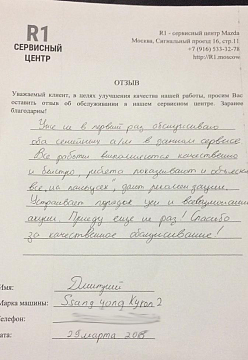 R1
СЕРВИСНЫЙ
ЦЕНТР
R1 - сервисный центр Mazda
Москва, Сигнальный проезд 16, стр.11
+7 (916) 533-32-78
http://R1.moscow
ОТЗЫВ
Уважаемый клиент, в целях улучшения качества нашей работы, просим Вас
оставить отзыв об обслуживании в нашем сервисном центре. Заранее
благодарны!
Уже не в первый раз обслуживаю
оба семейных а/м в данном сервисе
Все работы выполняются качественно
и быстро, ребята показывают и объясняют
все, на "пальцах", дают рекомендации.
Устраивает порядок цен и всевозможные
акции. Приеду еще не раз! Спасибо
за качественное обслуживание!
Имя: Дмитрий
Марка машины: Ssang Yong Kyron 2
Телефон:
Дата: 29 марта